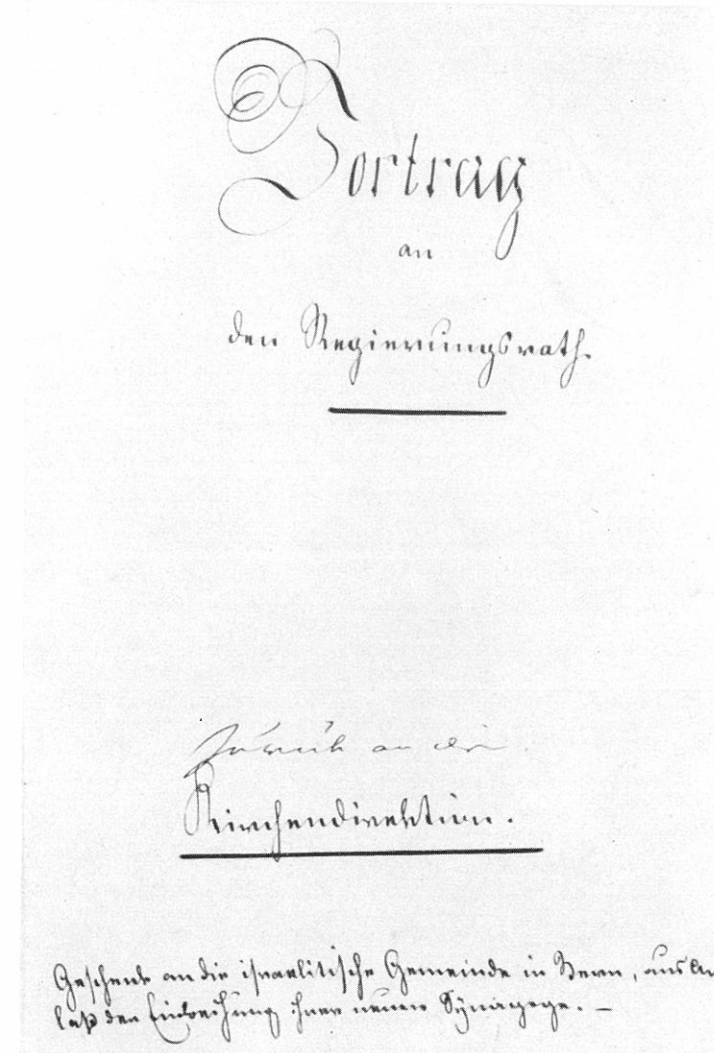 Vortrag
an
den Regierungsrath.
Zurück an die
Kirchendirektion.
Geschenk an die israelitische Gemeinde in Bern, aus An-
laß der Einweihung ihrer neuen Synagoge. —